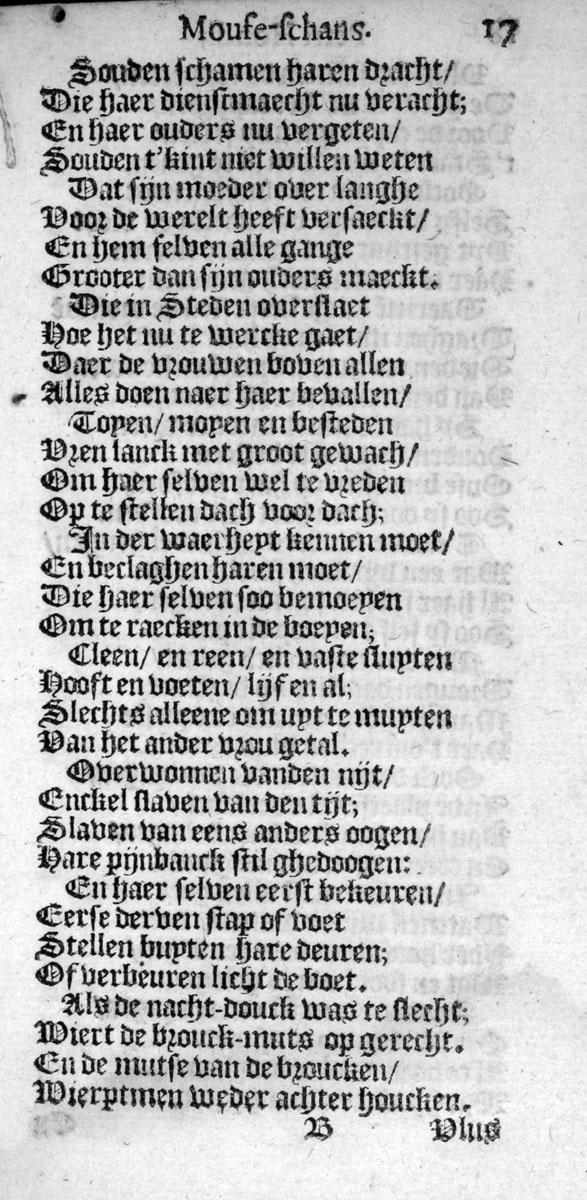 Mouse-schans. 17
Souden schamen haren dracht/
Die haer dienstmaecht nu veracht;
En haer ouders nu vergeten/
Souden t'kint niet willen weten
Dat sijn moeder over langhe
Voor de werelt heeft versaeckt/
En hem selven alle gange
Grooter dan sijn ouders maeckt.
Die in Steden overslaet
Hoe het nu te wercke gaet/
Daer de vrouwen boven allen
Alles doen naer haer bevallen/
Toyen/ moyen en besteden
Vren lanck met groot gewach/
Om haer selven wel te vreden
Op te stellen dach voor dach;
In der waerheyt kennen moet/
En beclaghen haren moet/
Die haer selven soo bemoeyen
Om te raecken in de boeyen;
Cleen/ en reen/ en vaste sluyten
Hooft en voeten/ lijf en al;
Slechts alleene om uyt te muyten
Van het ander vrou getal.
Overwonnen vanden nijt/
Enckel slaven van den tijt;
Slaven van eens anders oogen/
Hare pijnbanck stil ghedoogen:
En haer selven eerst bekeuren/
Eerse derven stap of voet
Stellen buyten hare deuren;
Of verbeuren licht de boet.
Als de nacht-douck was te slecht;
Wiert de brouck-muts op gerecht.
En de mutse van de broucken/
Wierptmen weder achter houcken.
B Vlus